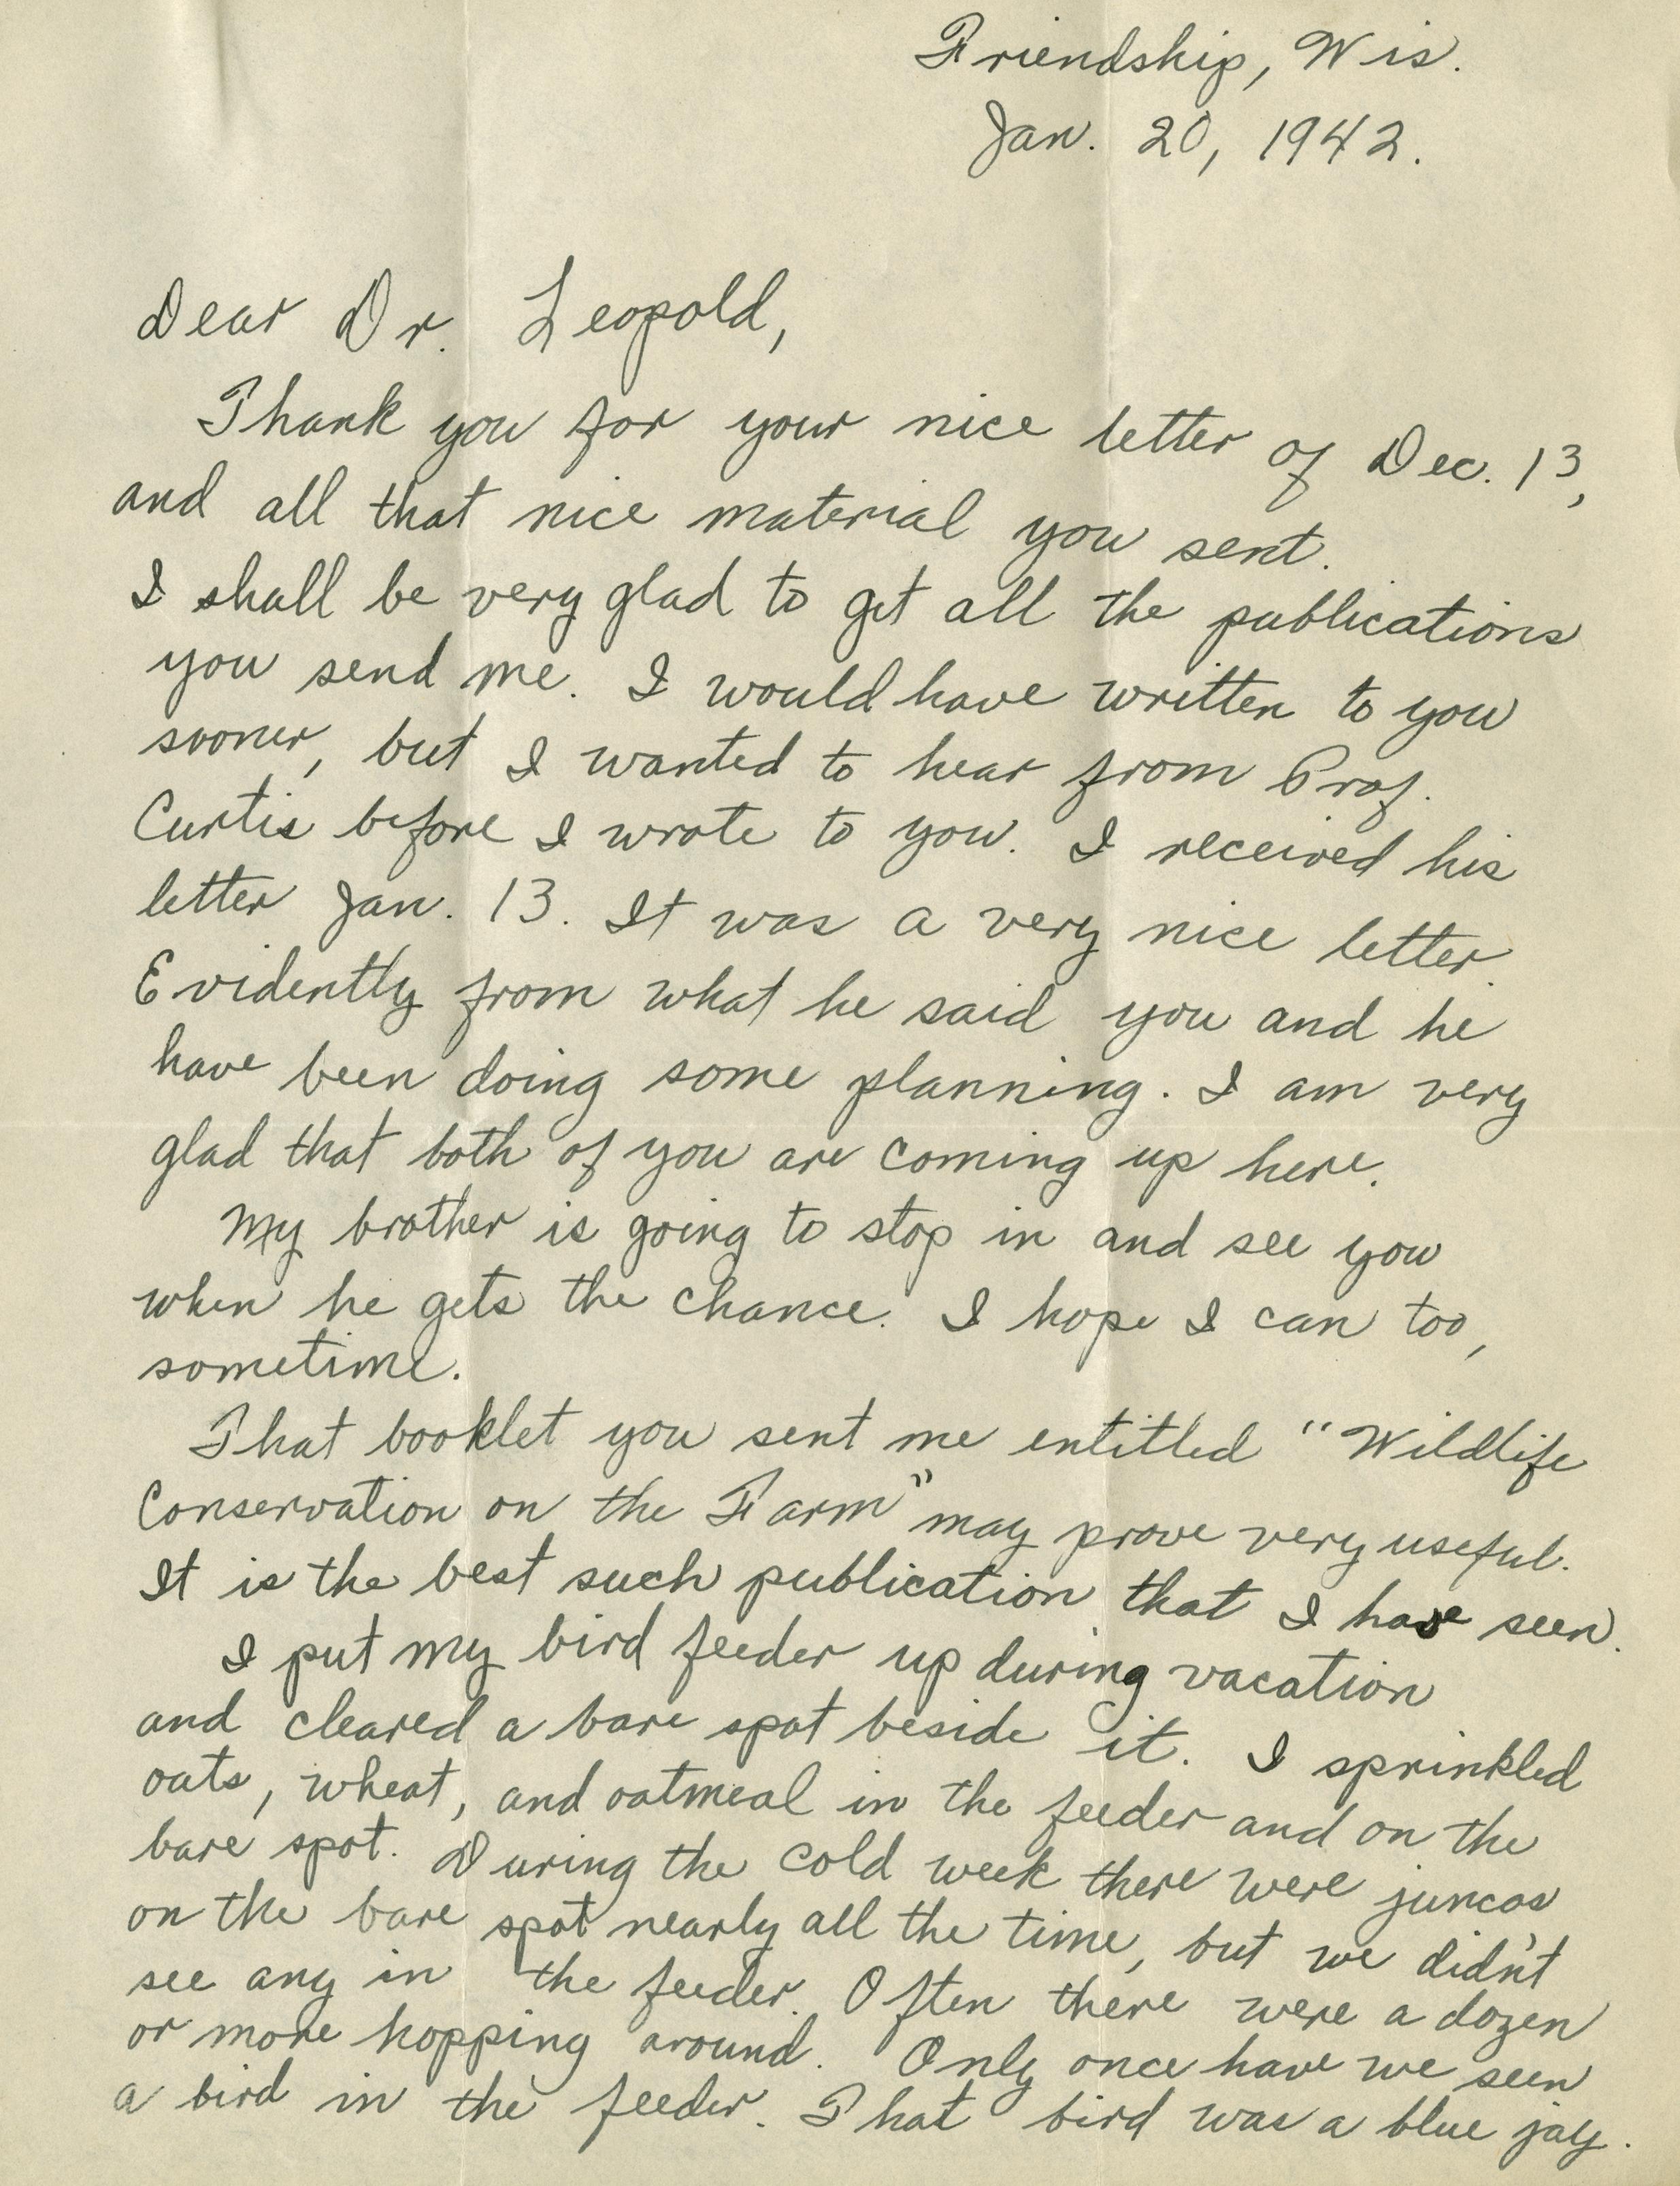 Friendship, Wis.
Jan. 20, 1942.
Dear Dr. Leopold,
Thank you for your nice letter of Dec. 13,
and all that nice material you sent.
I shall be very glad to get all the publications
you send me. I would have written to you
sooner, but I wanted to hear from Prof.
Curtis before I wrote to you. I received his
letter Jan. 13. It was a very nice letter
Evidently from what he said you and he
have been doing some planning. I am very
glad that both of you are coming up here.
My brother is going to stop in and see you
when he gets the chance. I hope I can too,
sometime.
That booklet you sent me entitled "Wildlife
Conservation on the Farm" may prove very useful.
It is the best such publication that I have seen.
I put my bird feeder up during vacation
and cleared a bare spot beside it. I sprinkled
oats, wheat, and oatmeal in the feeder and on the
bare spot. During the cold week there were juncos
on the bare spot nearly all the time, but we didn't
see any in the feeder. Often there were a dozen
or more hopping around. Only once have we seen
a bird in the feeder. That bird was a blue jay.